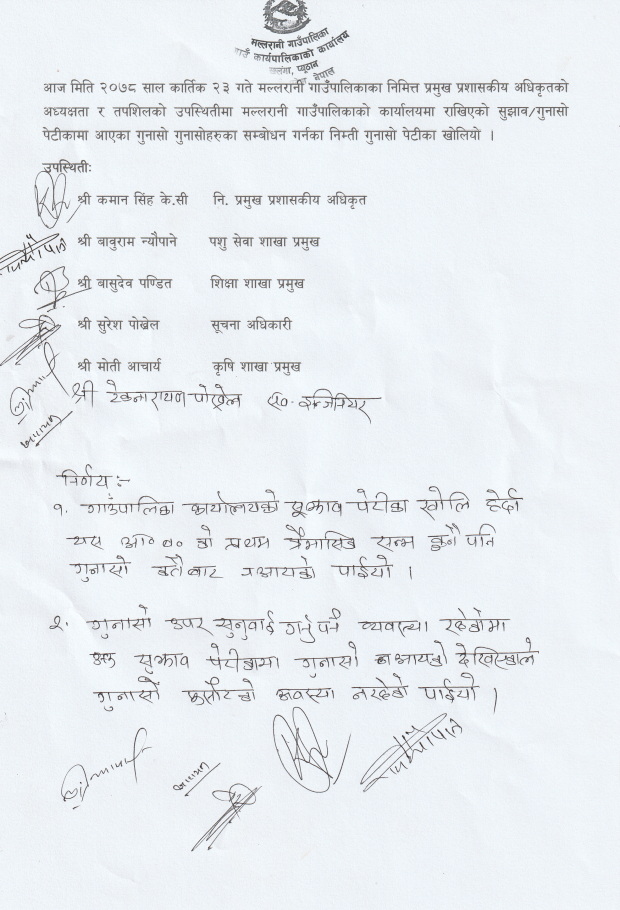 मल्लरानी गाउँपालिका
गाउँ कार्यपालिकाको कार्यालय
प्यूठान
नेपाल
आज मिति २०७८ साल कार्तिक २३ गते मल्लरानी गाउँपालिकाका निमित्त प्रमुख प्रशासकीय अधिकृतको
अध्यक्षता र तपशिलको उपस्थितीमा मल्लरानी गाउँपालिकाको कार्यालयमा राखिएको सुझाव/गुनासो
पेटीकामा आएका गुनासो गुनासोहरुका सम्बोधन गर्नका निम्ती गुनासो पेटीका खोलियो ।
उपस्थिती:
श्री कमान सिंह के.सी नि. प्रमुख प्रशासकीय अधिकृत
श्री बाबुराम न्यौपाने पशु सेवा शाखा प्रमुख
श्री बासुदेव पण्डित शिक्षा शाखा प्रमुख
श्री सुरेश पोख्रेल सूचना अधिकारी
श्री मोती आचार्य कृषि शाखा प्रमुख
श्री टेकनारायण पोख्रेल ईन्जिनियर
निर्णय :-
१. गाउँपालिका कार्यालयको सुझाव पेटीका खोलि हेर्दा
यस आ०व० को प्रथम त्रैमासिक सम्म कुनै पनि
गुनासो कतैबाट नआएको पाईयो ।
२. गुनासो उपर सुनुवाई गर्नु पर्ने व्यवस्था रहेकोमा
उक्त सुझाव पेटीकामा गुनासो नआएको देखिएकोले
गुनासो फर्स्यौटको अवस्था नरहेको पाईयो ।